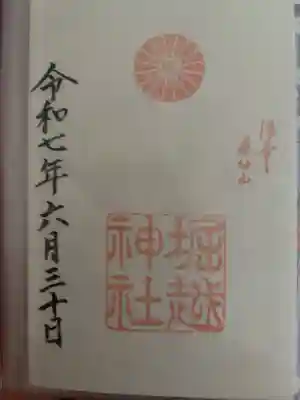 堀越
神社
令和七年六月三十日